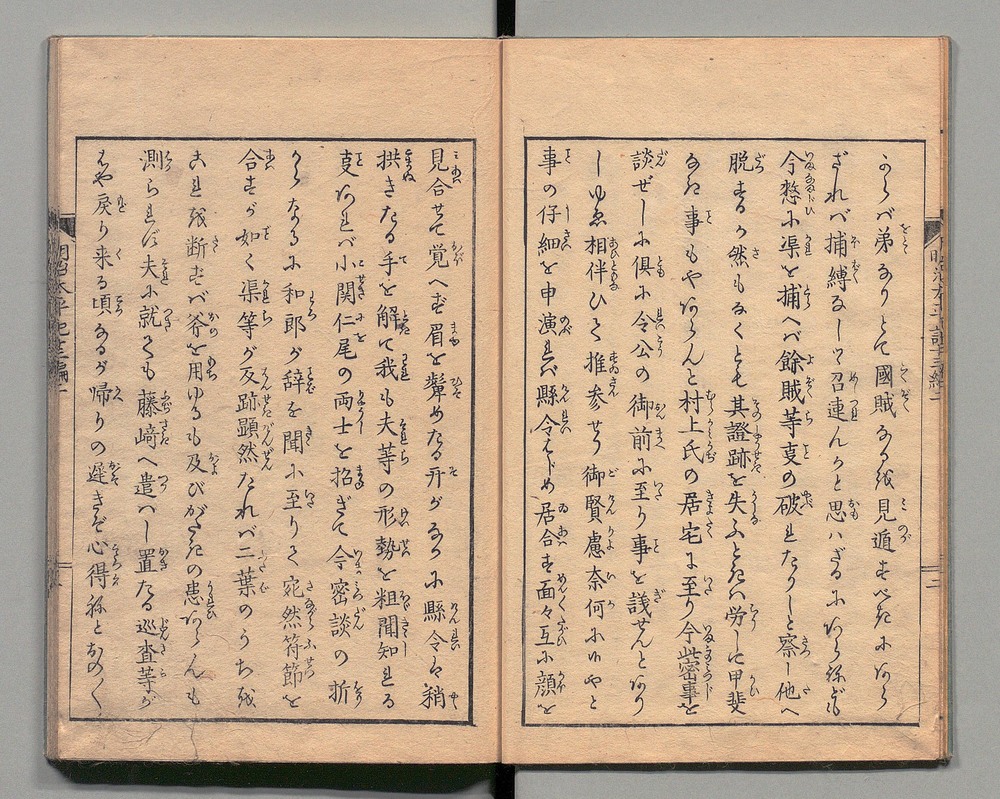 からバ弟なりとて國賊なるを見遁すべきにあら
ざれバ捕縛なして召連んかと思ハざるにあらねども
今愁に渠を捕へバ餘賊等支の破れたりしと察し他へ
脱するか然もなくとも其證跡を失ふときハ労して甲斐
なき事もやあらんと村上氏の居宅に至り今此密事を
談ぜしに倶に令公の御前に至り事を議せんとあり
しゆゑ相伴ひて推参せり御賢慮奈何にやと
事の仔細を申演れバ縣令はじめ居合す面々互に顔を
見合せて覚へず眉を顰めたる开が中に縣令ハ稍
拱きたる手を解て我も夫等の形勢を粗聞知れる
支あれバ小関仁尾の両士を招ぎて今密談の折
からなるに和郎が辞を聞に至りて宛然符節を
合すが如く渠等が反跡顕然たれバ二葉のうちを
これを断ずバ斧を用ゆるも及びがたきの患あらんも
測られず夫に就ても藤﨑へ遣ハし置たる巡査等が
はや戻り来る頃なるが帰りの遅きぞ心得ねとおのく